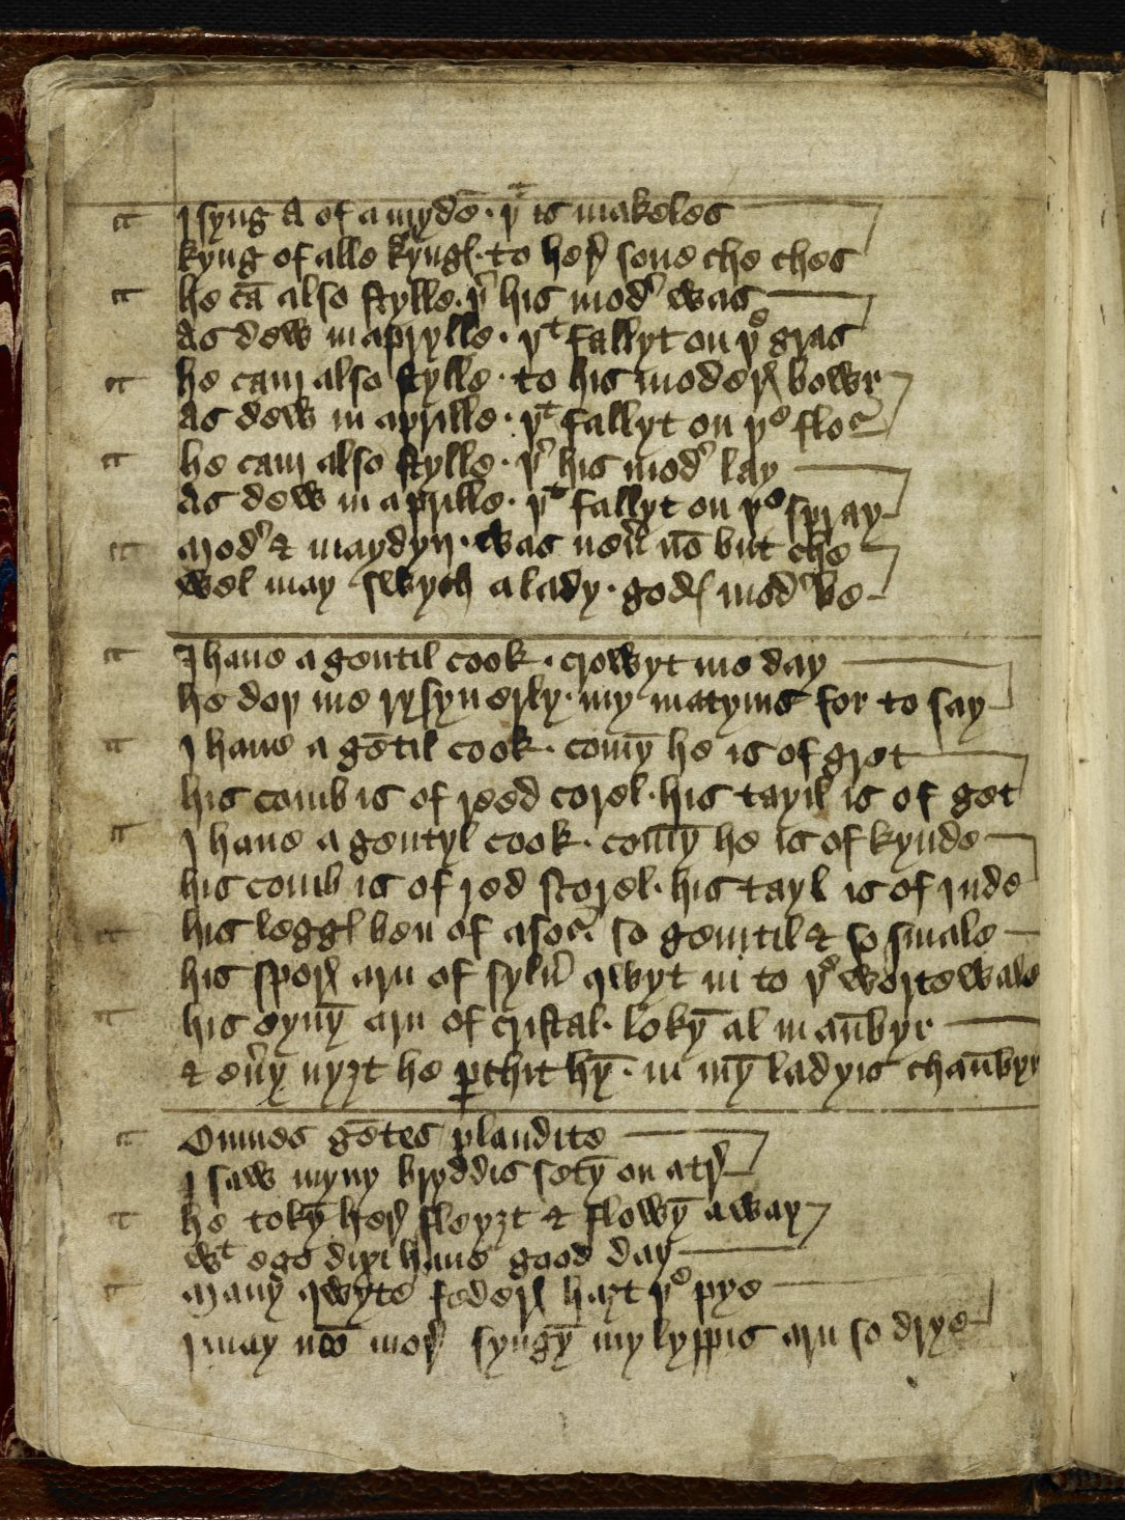 I syng A of a mydē · þᵗ is makeles
kyng of alle kyngꝭ · to her̃ sone che ches
he cā also stylle · þ͛ his mod͛ was
As dew in aprylle · þᵗ fallyt on þᵉ gras
he cam also stylle · to his moderꝭ bowr
As dew in aprille · þᵗ fallyt on þᵉ flor̃
he cam also stylle · þ͛ his mod͛ lay
As dew in aprille · þᵗ fallyt on þᵉ spray
mod͛ & maydyn · was neu͛ nō but che
wel may swych a lady · godꝭ mod͛ be
I haue a gentil cook · crowyt me day
he doþ me rysyn erly · my matyins for to say
I haue a gētil cook · comȳ he is of gret
his comb is of reed corel · his tayil is of get
I haue a gentyl cook · comȳ he is of kynde
his comb is of red scorel · his tayl is of inde
his leggꝭ ben of asor̃ · so gentil & so smale
his sporꝭ arn of sylu͛ qwyt in to þᵉ wortewale
his eynȳ arn of cristal · lokȳ al in aūbyr
& eu͛y nyȝt he ꝑchit hȳ · in mȳ ladyis chaūbyr
Omnes gētes plaudite
I saw myny bryddis setȳ on a tr̃
he tokȳ her̃ fleyȝt & flowȳ a way
wᵗ ego dixi haue good day
Many qwyte federꝭ haȝt þᵉ pye
I may noō mor̃ syngȳ my lyppis arn so drye